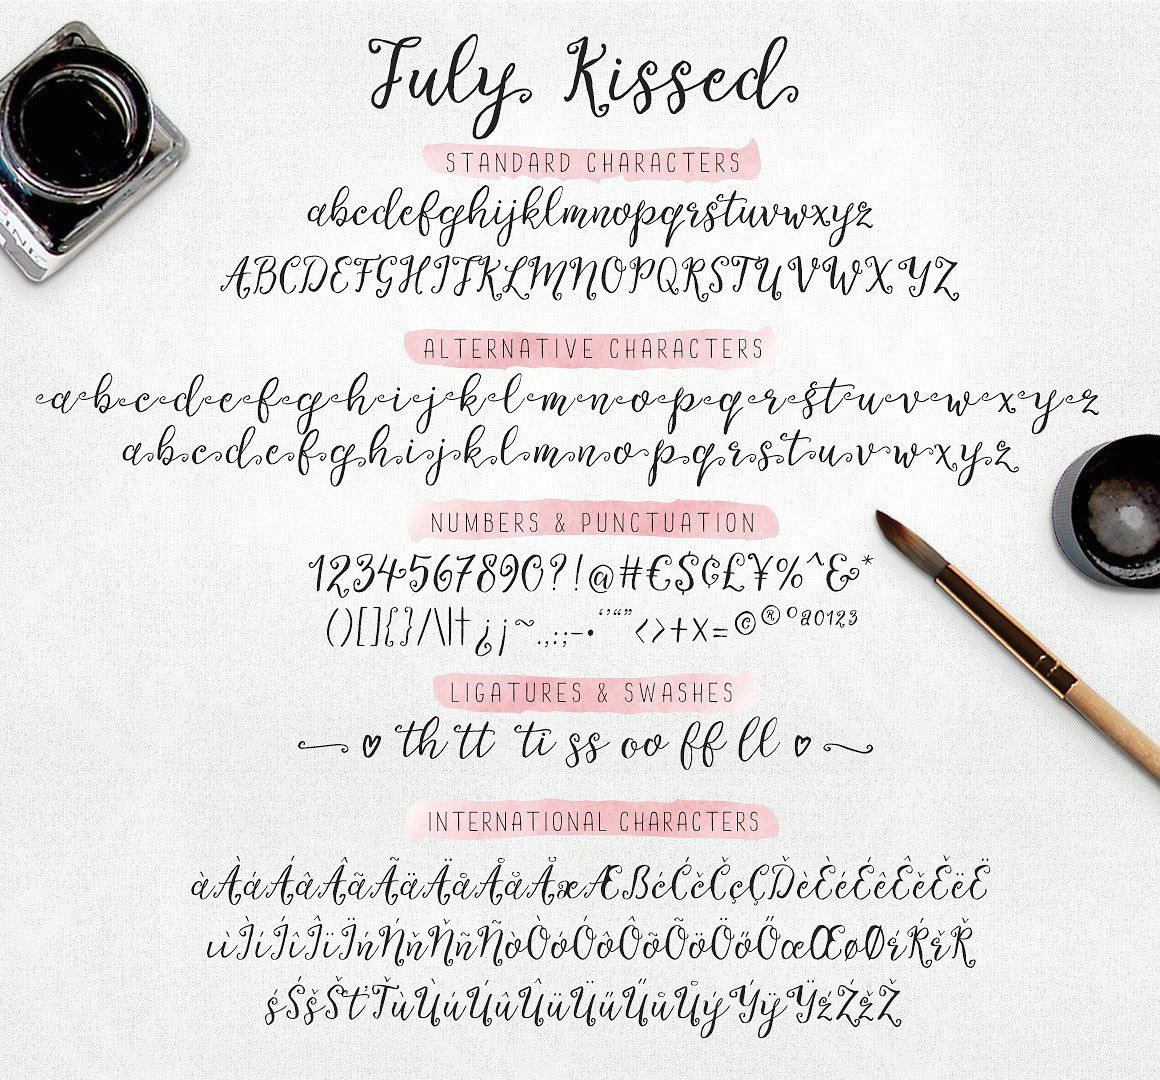 July Kissed
STANDARD CHARACTERS
abcdefghijklmnopqrstuvwxyz
ABCDEFGHIJKLMNOPQRSTUVWXYZ
ALTERNATIVE CHARACTERS
abcdefghijklmnopqrstuvwxyz
abcdefghijklmnopqrstuvwxyz
NUMBERS & PUNCTUATION
1234567890?!@#€$¢£¥%^&*
()[]{}/\|†¿¡~.,:;-•‘’“”<>+x=©®ºª0123
LIGATURES & SWASHES
th tt ti ss oo ff ll
INTERNATIONAL CHARACTERS
àÀáÁâÂãÃäÄåÅăĂæÆßćĆčČçÇĎèÈéÉêÊěĚëË
ıìÌíÍîÎïÏńŃňŇñÑòÒóÓôÔõÕöÖőŐœŒøØŕŔřŘ
śŚšŠťŤùÙúÚûÛüÜűŰůŮýÝÿŸźŹžŽ